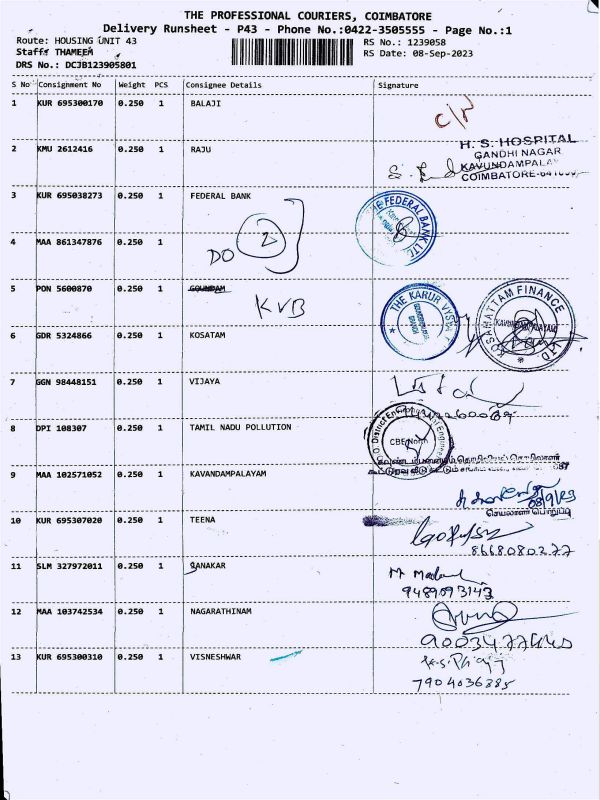 THE PROFESSIONAL COURIERS, COIMBATORE
Delivery Runsheet - P43 - Phone No.:0422-3505555 - Page No.:1
Route: HOUSING UNIT 43
RS No.: 1239058
Staff: THAMEEM
RS Date: 08-Sep-2023
DRS No.: DCJB123905801
S No Consignment No Weight PCS Consignee Details Signature
1 KUR 695300170 0.250 1 BALAJI
2 KMU 2612416 0.250 1 RAJU
H. S. HOSPITAL
GANDHI NAGAR
KAVUNDAMPALAY
COIMBATORE-641
3 KUR 695038273 0.250 1 FEDERAL BANK
FEDERAL BANK LTD
4 MAA 861347876 0.250 1
DO 2
5 PON 5600870 0.250 1 GOUNDAM
KVB
THE KARUR VYSYA
KOSAMATTAM FINANCE LTD.
6 GDR 5324866 0.250 1 KOSATAM
7 GGN 98448151 0.250 1 VIJAYA
8 DPI 108307 0.250 1 TAMIL NADU POLLUTION
CBE/North
9 MAA 102571052 0.250 1 KAVANDAMPALAYAM
08/9/23
செயலாளர் பொறுப்பு
10 KUR 695307020 0.250 1 TEENA
8668080277
11 SLM 327972011 0.250 1 SANAKAR
9489093143
12 MAA 103742534 0.250 1 NAGARATHINAM
13 KUR 695300310 0.250 1 VISNESHWAR
7904036385